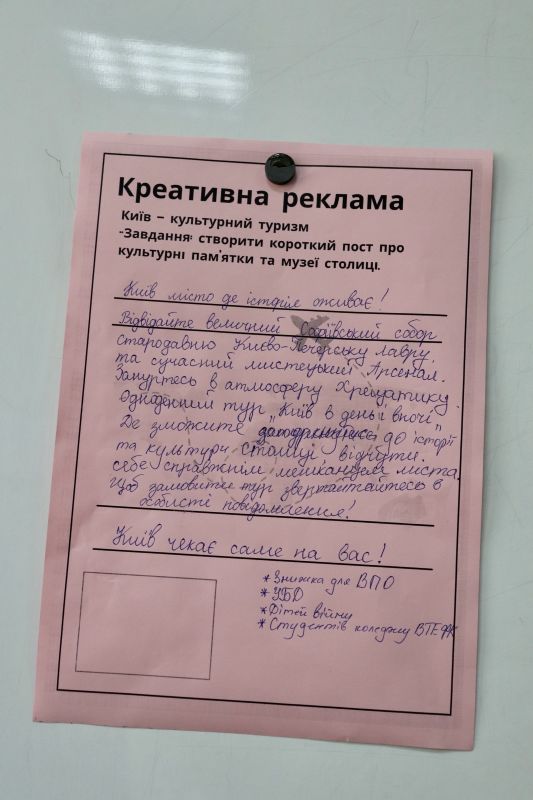 Креативна реклама
Київ – культурний туризм
-Завдання: створити короткий пост про
культурні пам'ятки та музеї столиці.
Київ місто де історія оживає!
Відвідайте величний Софіївський собор
стародавню Києво-Печерську лавру,
та сучасний мистецький Арсенал.
Зануртесь в атмосферу Хрещатику.
Одноденний тур "Київ в день і вночі"
Де зможите доторкнутись до історії
та культури столиці відчути
себе справжнім мешканцем міста.
Щоб замовити тур звертайтайтесь в
особисті повідомлення!
Київ чекає саме на вас!
* Знижка для ВПО
* УБД
* Дітей війни
* Студентів коледжу ВТЕФК